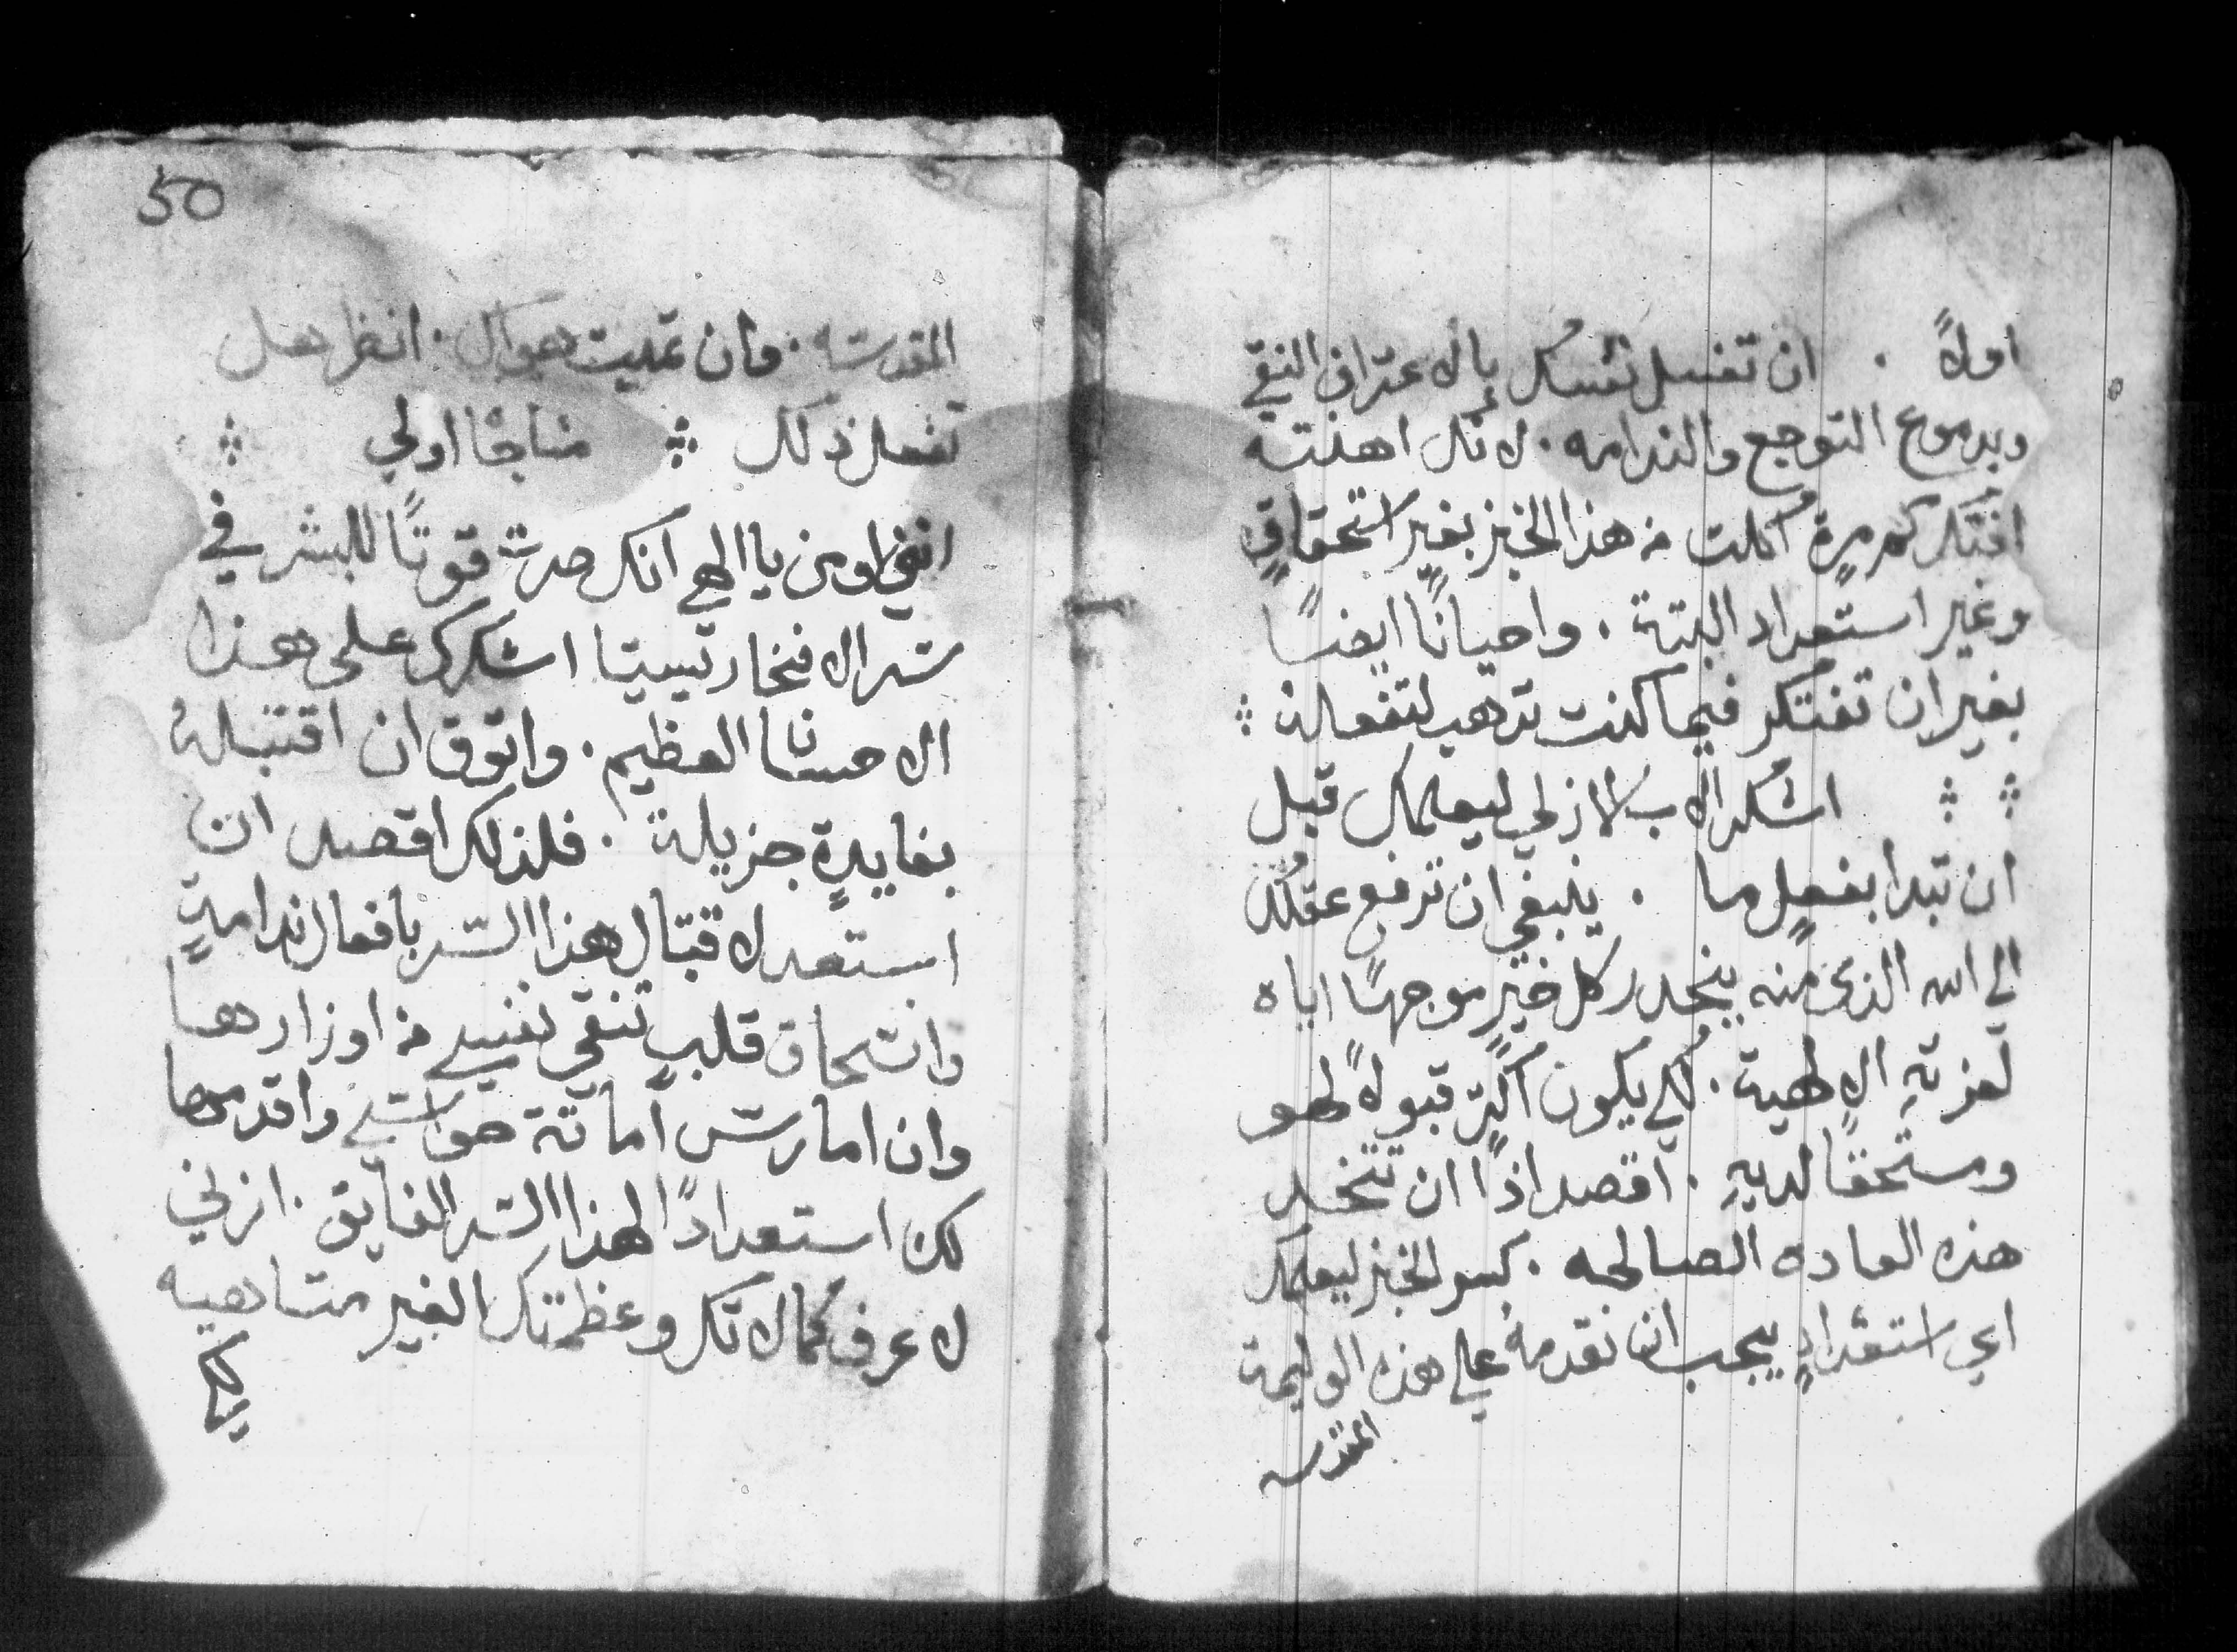 اولاً . ان تغسل نفسك بالاعتراف النقي
وبدموع التوجع والندامه . لانك اهنته
افتكر كم مرةٍ اكلت من هذا الخبز بغير استحقاقٍ
وغير استعداد البتة . واحياناً ايضاً
بغير ان تفتكر فيما كنت تذهب لتفعله
اشكر الاب الازلي ليعلمك قبل
ان تبدا بفعلٍ ما . ينبغي ان ترفع عقلك
الي الله الذي منه ينحدر كل خيرٍ موجهاً اياه
لعزتهِ الالهية . لكي يكون اكثر قبولاً لهو
ومستحقاً لديهِ . اقصد اذاً ان تتخد
هذه العاده الصالحه . كسر الخبز ليعلمك
اي استعدادٍ يجب ان نقدمهُ علي هذه الوليمة
المقدسه
50
المقدسه . وان تميت هواك . انظر هل
تفعل ذلك مناجا اولي
انني اومن يا الهي انك صرت قوتاً للبشر في
سر الافخارستيا اشكرك علي هذا
الاحسان العظيم . واتوق ان اقتبلهُ
بفايدةٍ جزيلة . فلذلك اقصد ان
استعد لاقتبال هذا السر بافعال ندامةٍ
وانسحاق قلبٍ تنقي نفسي من اوزارها
وان امارس اماتة حواسي واقدمها
لك استعداداً لهذا السر الفايق . انرني
لاعرف كمالاتك وعظمتك الغير متناهيه
لكي